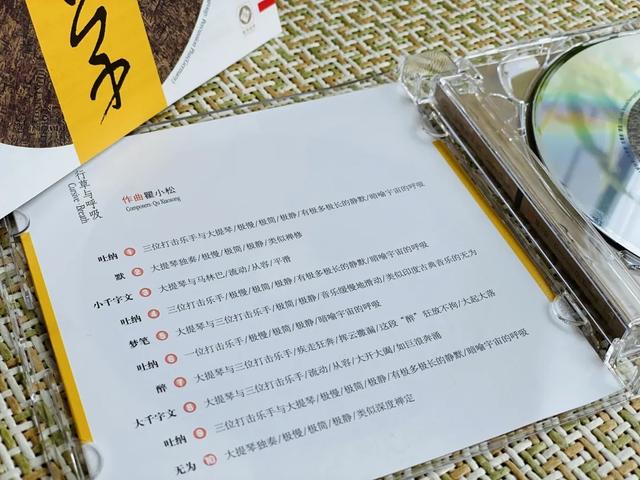 行草与呼吸
Cursive Breath
作曲瞿小松
Composers-Qu Xiaosong
吐纳 1 三位打击乐手与大提琴/极慢/极简/极静/有极多极长的静默/暗喻宇宙的呼吸
默 2 大提琴独奏/极慢/极简/极静/类似禅修
小千字文 3 大提琴与马林巴/流动/从容/平滑
吐纳 4 三位打击乐手/极慢/极简/极静/有极多极长的静默/暗喻宇宙的呼吸
梦笔 5 大提琴与三位打击乐手/极慢/极简/极静/音乐缓慢地滑动/类似印度古典音乐的无为
吐纳 6 一位打击乐手/极慢/极简/极静/暗喻宇宙的呼吸
醉 7 大提琴与三位打击乐手/疾走狂奔/挥云撒漏/这段“醉”狂放不拘/大起大落
大千字文 8 大提琴与三位打击乐手/流动/从容/大开大阖/如巨浪奔涌
吐纳 9 三位打击乐手与大提琴/极慢/极简/极静/有极多极长的静默/暗喻宇宙的呼吸
无为 10 大提琴独奏/极慢/极简/极静/类似深度禅定